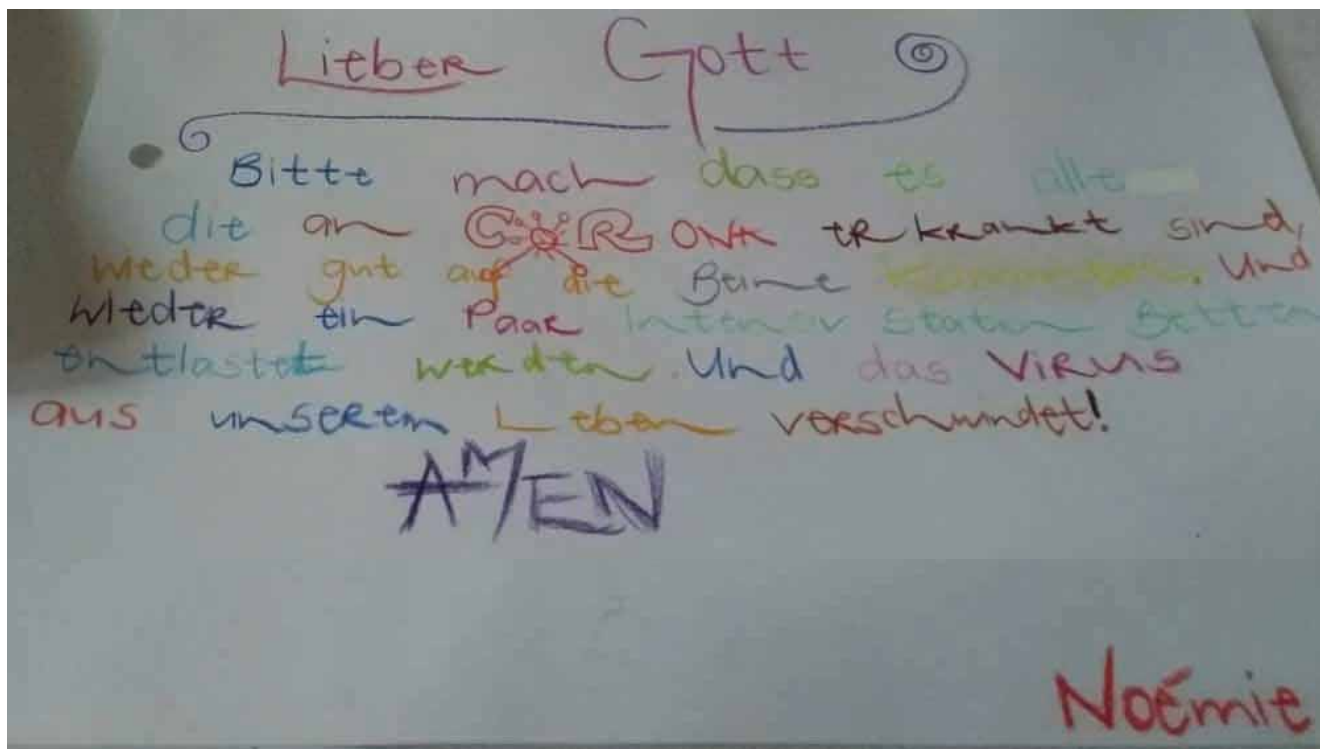 Lieber Gott
Bitte mach dass es alle
die an CORONA erkrankt sind,
wieder gut auf die Beine kommen. Und
wieder ein Paar intensiv staten Betten
entlastet werden. Und das Virus
aus unserem Leben verschwindet!
AMEN
Noémie